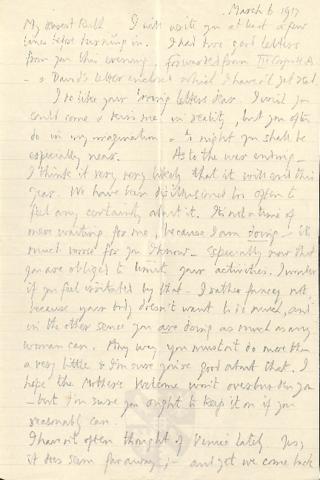 March 6 1917
My dearest Ruth I will write you at least a few
lines before turning in. I had two good letters
from you this evening, forwarded from IV Corps H.A.
- & David's letter enclosed which I haven't yet read
I do like your loving letters dear. I wish you
could come & turn me in reality, but you often
do in my imagination - & tonight you shall be
especially near. As to the war ending -
I think it very very likely that it will end this
year. We have been disillusioned too often to
feel any certainty about it. It's not a time of
mere waiting for me, because I am doing - it's
much worse for you I know - especially now that
you are obliged to limit your activities. I wonder
if you feel irritated by that. I rather fancy not
because your body doesn't want to be moved, and
in the other sense you are doing as much as any
woman can. Any way you mustn't do more than
a very little & I'm sure you're good about that. I
hope the Mothers Welcome won't overburden you
- but I'm sure you ought to keep it on if you
reasonably can.
I haven't often thought of Venice lately. Yes,
it does seem far away; - and yet we come back